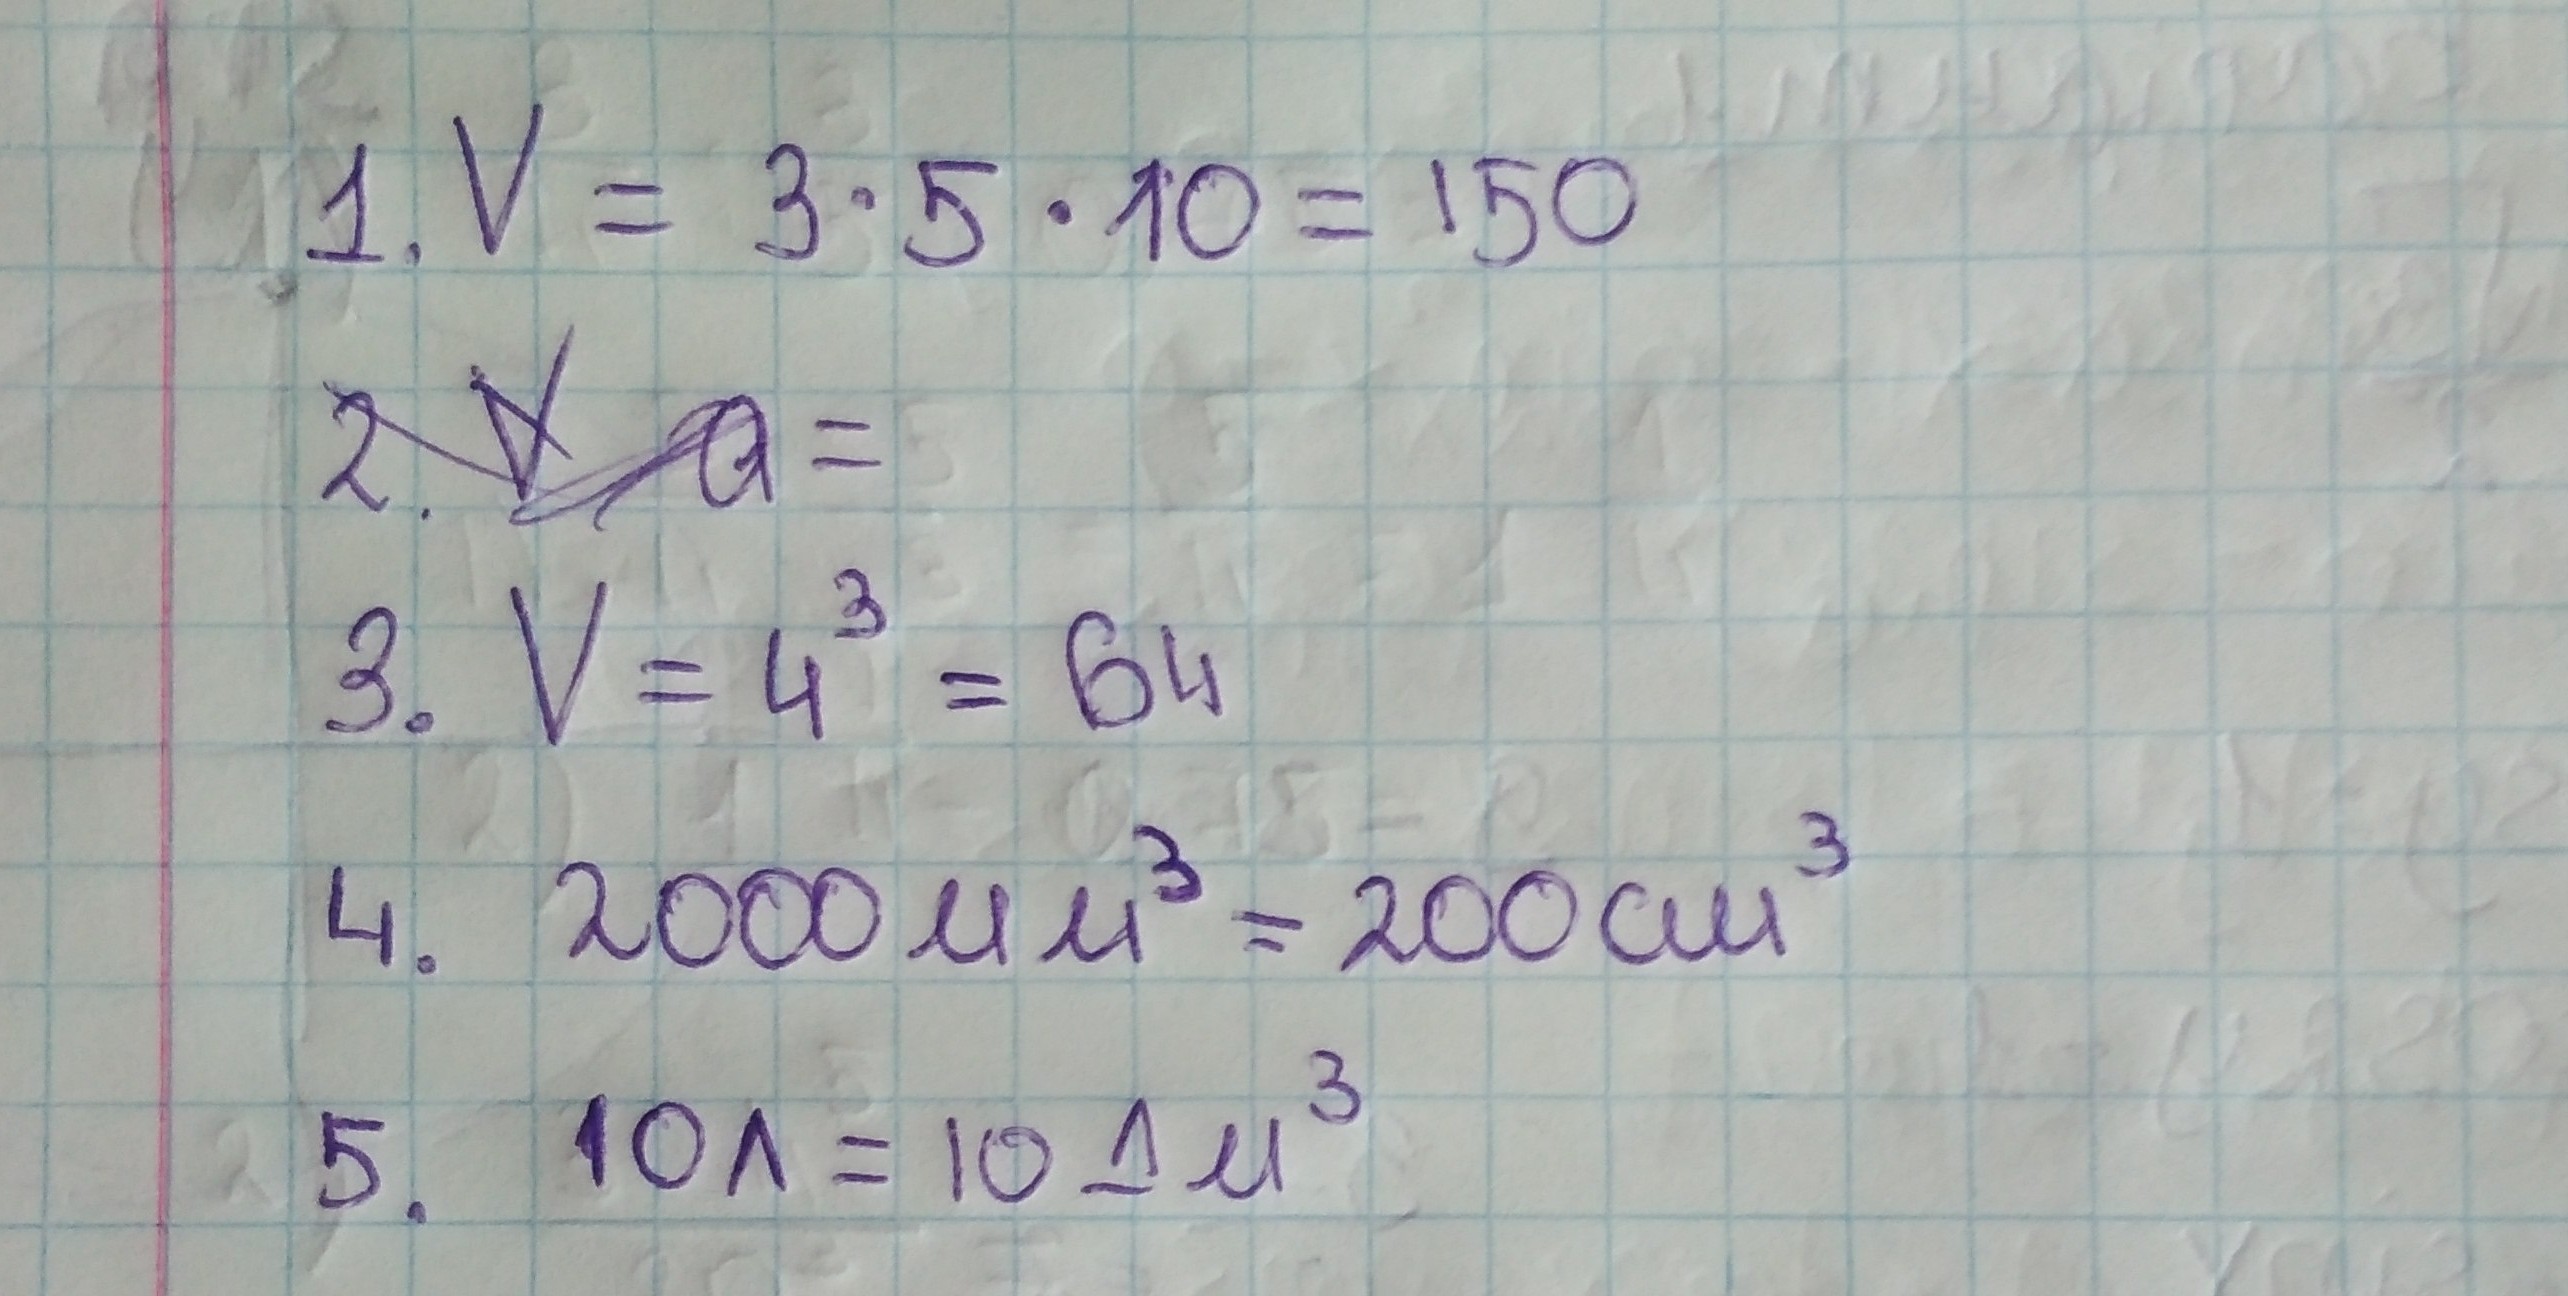 1. V = 3 · 5 · 10 = 150
2. V a =
3. V = 4³ = 64
4. 2000 мм³ = 200 см³
5. 10 л = 10 дм³